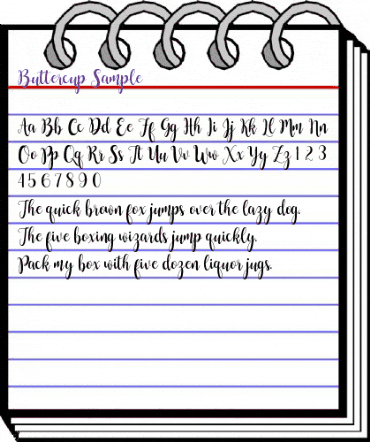 Buttercup Sample
Aa Bb Cc Dd Ee Ff Gg Hh Ii Jj Kk Ll Mm Nn
Oo Pp Qq Rr Ss Tt Uu Vv Ww Xx Yy Zz 1 2 3
4 5 6 7 8 9 0
The quick brown fox jumps over the lazy dog.
The five boxing wizards jump quickly.
Pack my box with five dozen liquor jugs.